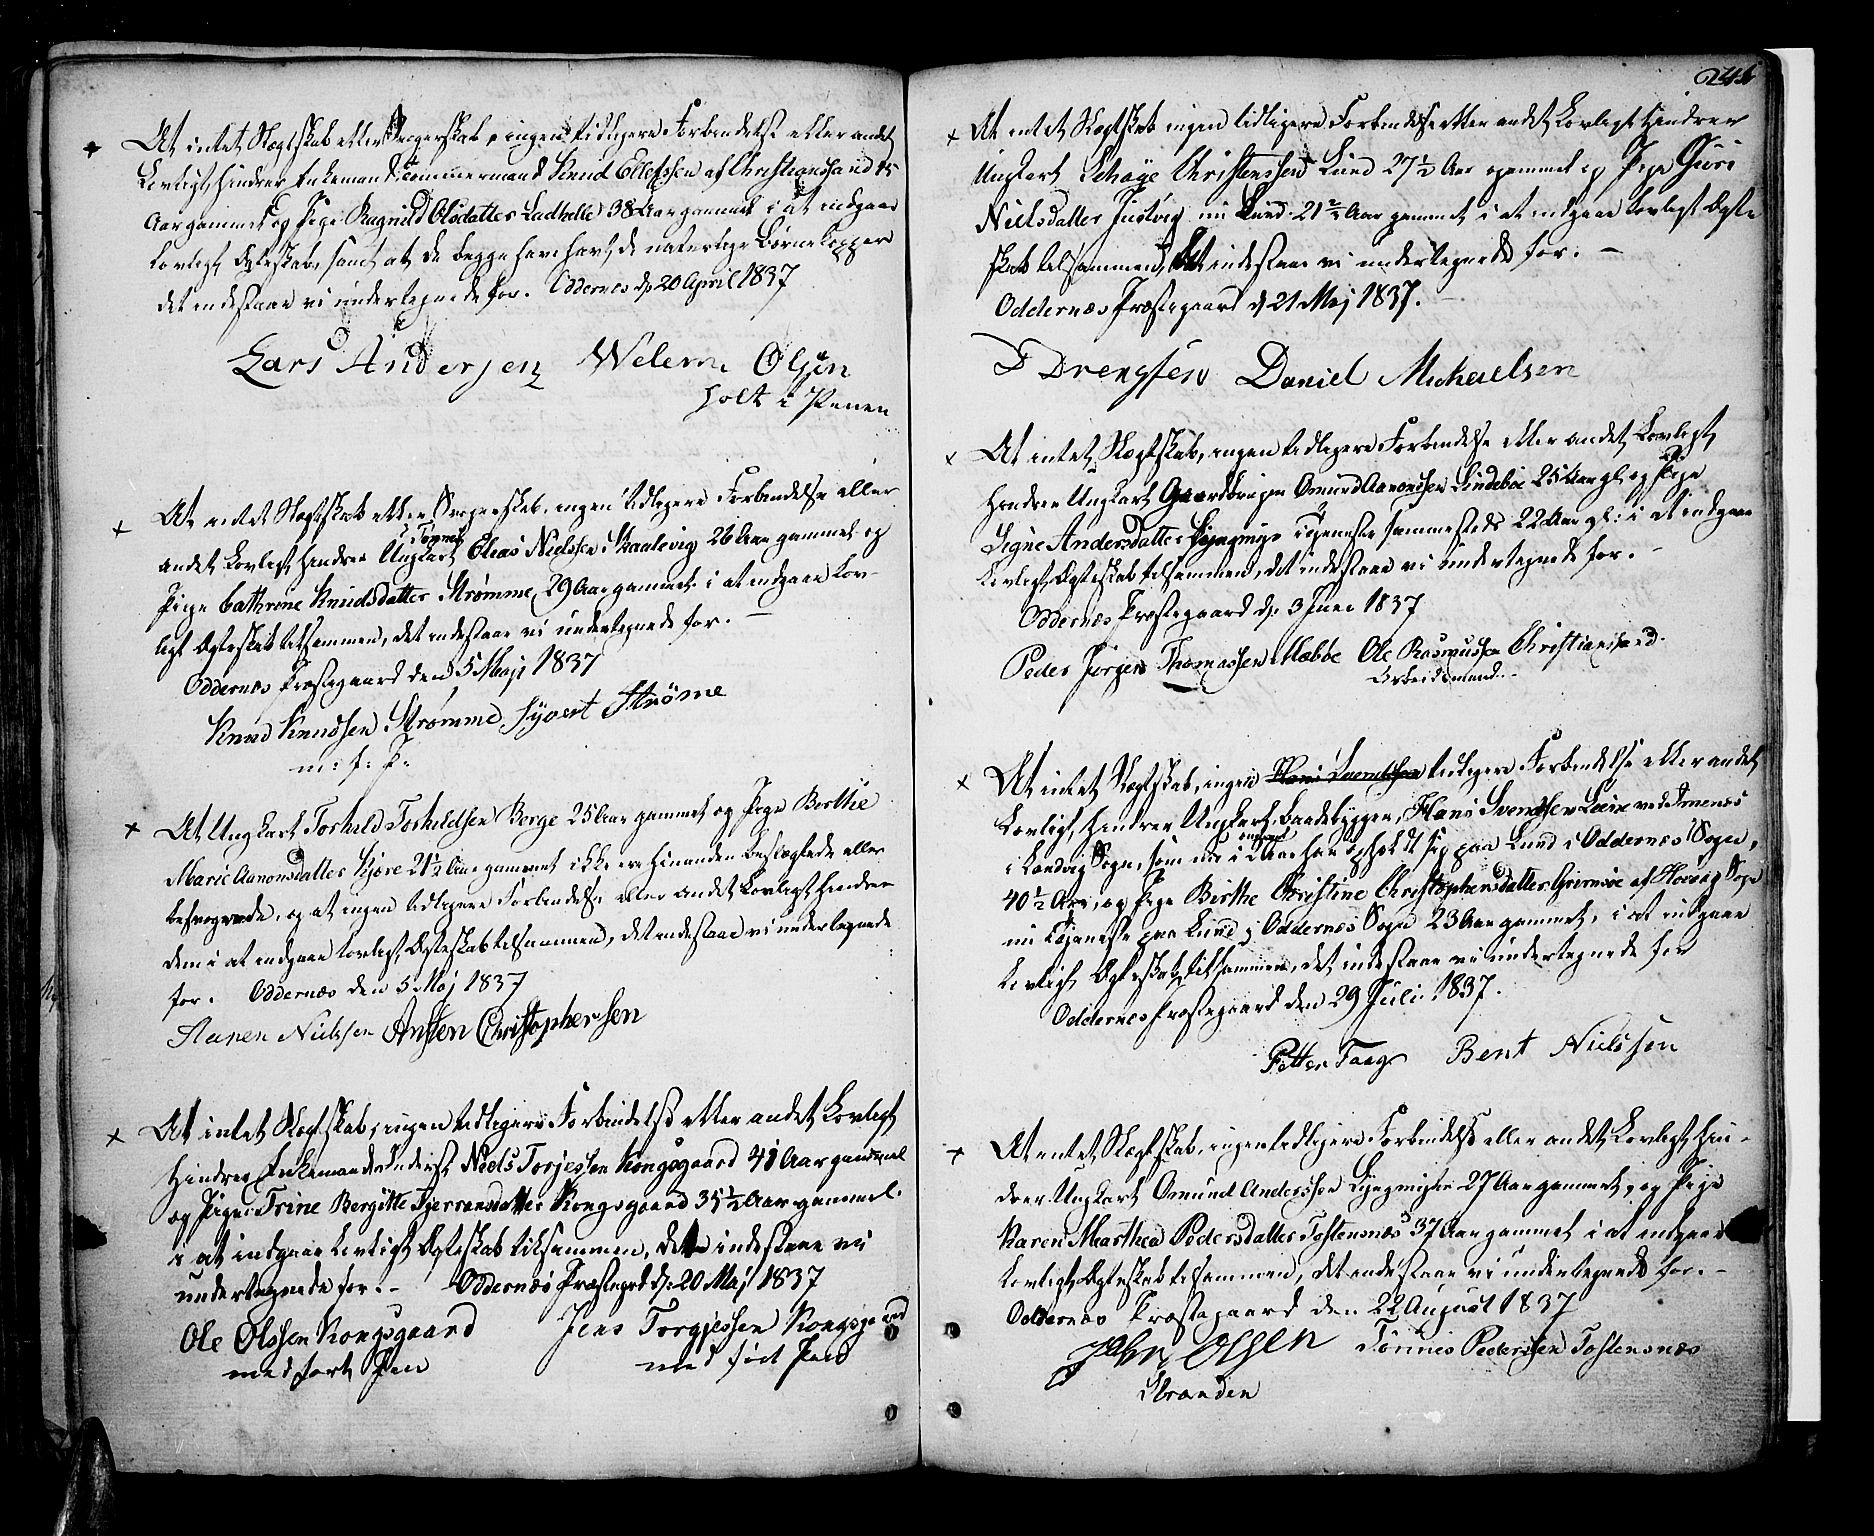 At intet Slægtskab eller Svogerskab, ingen tidligere Forbindelse eller andet
Lovligt, hindrer Enkemand Tømmermand Knud Ellefssen af Christianssand 45
Aar gammel og Pige Ragnild Olsdatter Ladhelle 38 Aar gammel i at indgaae
Lovligt Ægteskab, samt at de begge have havt de naturlige Børnekopper
det indestaae vi undertegnede for. Oddernes d: 20 April 1837
Lars Andersen Welem Olsen
Holt i Penen
At intet Slægtskab eller Svogerskab, ingen tidligere Forbindelse eller
andet Lovligt, hindrer Ungkarl Elias Nielssen Skaalevig 26 Aar gammel og
Pige Cathrine Knudsdatter Strømme, 29 Aar gammel i at indgaae Lov-
ligt Ægteskab tilsammen, det indestaae vi undertegnede for. —
Oddernes Præstegaard den 5 Maji 1837
Knud Knudsen Strømme, Syvert Strøme
m: f: P:
At Ungkarl Torkild Torkildsen Berge 25 Aar gammel og Pige Berthe
Marie Aanonsdatter Kjøre 21½ Aar gammel ikke ere hinanden beslægtede eller
besvogrede, og at ingen tidligere Forbindelse eller andet Lovligt hindrer
dem i at indgaae lovligt Ægteskab tilsammen, det indestaae vi undertegnede
for. Oddernes den 5 Maj 1837
Aanen Nielsen Ansten Christophersen
At intet Slægtskab, ingen tidligere Forbindelse eller andet Lovligt
hindrer Enkemand Inderst Niels Torjessen Kongsgaard 41 Aar gammel
og Pigen Trine Bergitte Tjerransdatter Kongsgaard 35½ Aar gammel
i at indgaae Lovligt Ægteskab tilsammen, det indestaae vi
undertegnede for. - Oddernes Præstegrd d: 20 Maj 1837
Ole Olssen Kongsgaard Jens Torgjessen Kongsgaard
med ført Pen med ført Pen
At intet Slægtskab ingen tidligere Forbindelse eller andet Lovligt hindrer
Ungkarl Christenssen Lund 27½ Aar gammel og Pige Guri
Nielsdatter Justvig nu Lund 21 Aar gammel i at indgaae Lovligt Ægte
skab tilsammen, det indestaae vi undertegnede for. —
Oddernæs Præstegaard d 21 Maj 1837.
D Drengsen Daniel Michaelsen
At intet Slægtskab, ingen tidligere Forbindelse eller andet Lovligt,
hindrer Ungkarl Gaardbruger Omund Aanonssen Lindeboe 25 Aar gl. og Pige
Signe Andersdatter i Tjeneste sammesteds 22 Aar gl: i at indgaae
Lovligt Ægteskab tilsammen, det indestaae vi undertegnede for. -
Oddernes Præstegaard d: 3 Juni 1837
Peder Jørgen Thomassen Mæbøe Ole Rasmussen Christianssand
Arbeidsmand. -
At intet Slægtskab, ingen tidligere Forbindelse eller andet
Lovligt, hindrer Ungkarl, Baadebygger, Hans Svendssen Leire ved
i Landvig Sogn, som nu i har opholdt sig paa Lund i Oddernes Sogn,
40½ Aar, og Pige Birthe Christine Christophersdatter af Høvaag Sogn
nu i Tjeneste paa Lund i Oddernes Sogn 23 Aar gammel, i at indgaae
Lovligt Ægteskab tilsammen, det indestaae vi undertegnede for
Oddernes Præstegaard den 29 Juli 1837.
Petter Taag Bent Nielssen
At intet Slægtskab, ingen tidligere Forbindelse eller andet Lovligt hin-
drer Ungkarl Omund Anderssen 27 Aar gammel, og Pige
Karen Marthea Pedersdatter Tostensnæs 37 Aar gammel i at indgaae
Lovligt Ægteskab tilsammen, det indestaae vi undertegnede for. -
Oddernes Præstegaard den 22 August 1837
John Olsen Tønnes Pederssen Tostensnæs
Stranden